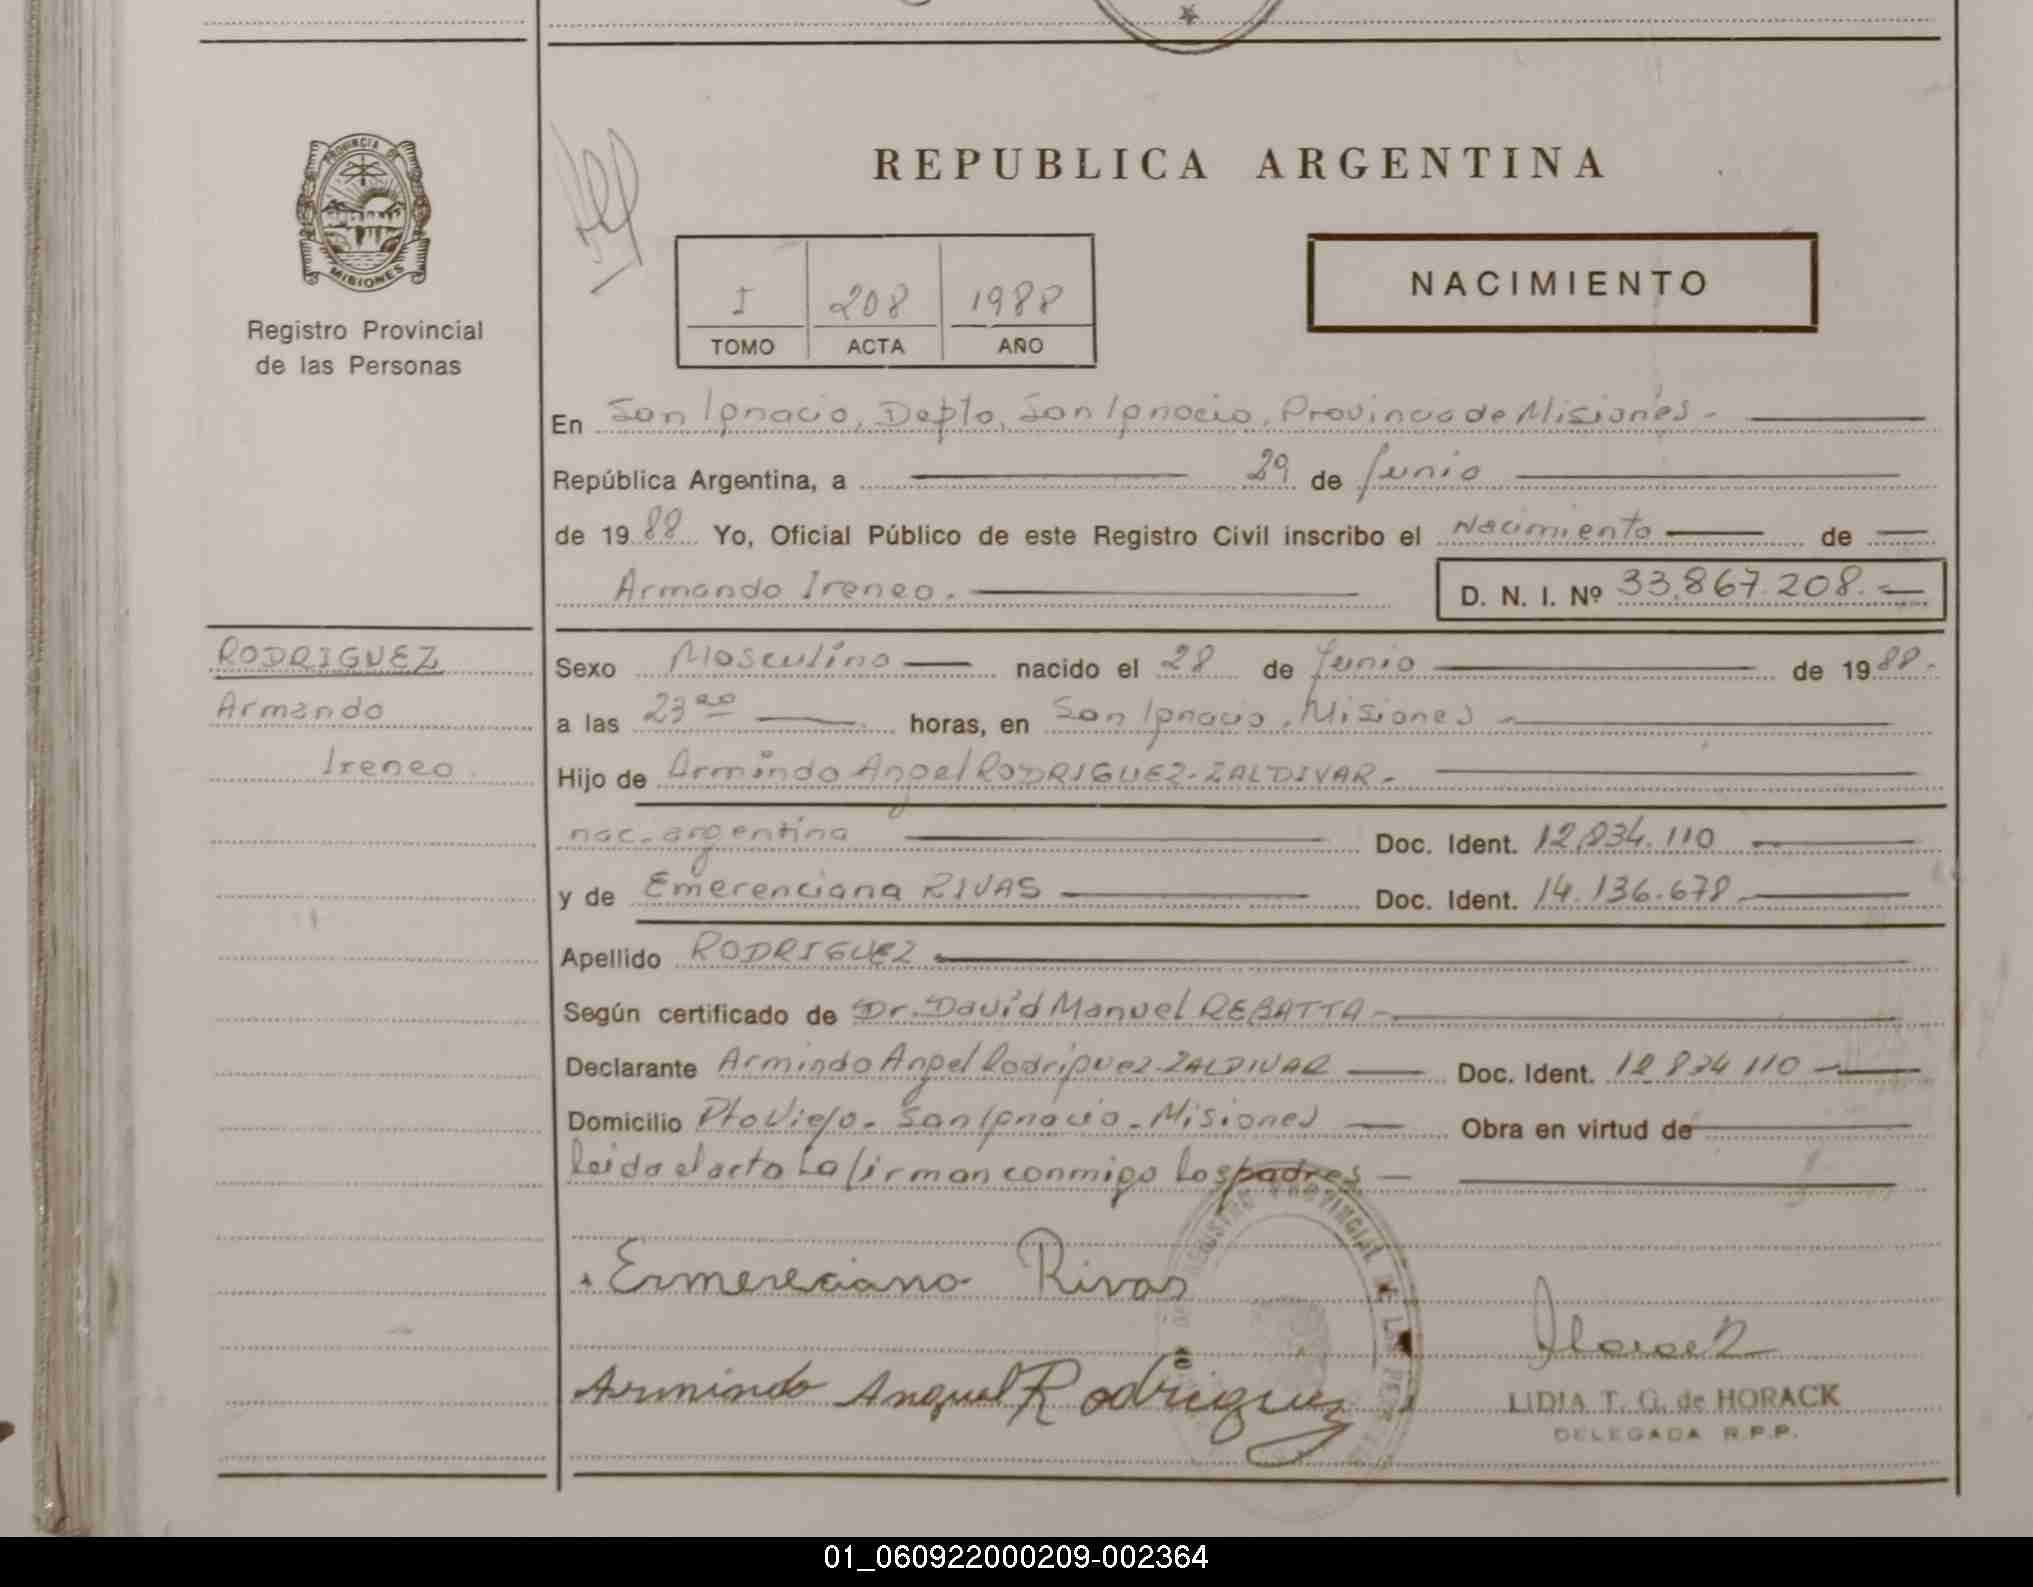 PROVINCIA DE
MISIONES
Registro Provincial
de las Personas
REPUBLICA ARGENTINA
NACIMIENTO
I 208 1988
TOMO ACTA AÑO
En San Ignacio, Depto, San Ignacio, Provincia de Misiones -
República Argentina, a 29 de Junio
de 1988 Yo, Oficial Público de este Registro Civil inscribo el Nacimiento de
Armando Ireneo. D. N. I. Nº 33.867.208.-
RODRIGUEZ
Armando
Ireneo
Sexo Masculino nacido el 28 de Junio de 1988.
a las 23 horas, en San Ignacio, Misiones -
Hijo de Armindo Angel RODRIGUEZ-ZALDIVAR-
nac. argentina Doc. Ident. 12.834.110
y de Emerenciana RIVAS Doc. Ident. 14.136.678
Apellido RODRIGUEZ
Según certificado de Dr. David Manuel REBATTA -
Declarante Armindo Angel Rodriguez-ZALDIVAR Doc. Ident. 12 834 110 -
Domicilio Pto Viejo - San Ignacio - Misiones Obra en virtud de
leida el acta La firman conmigo Los padres -
REGISTRO PROVINCIAL DE LAS PER
Ermereciana Rivas
Armindo Anguel Rodriguez
LIDIA T. G. de HORACK
DELEGADA R.P.P.
01_060922000209-002364